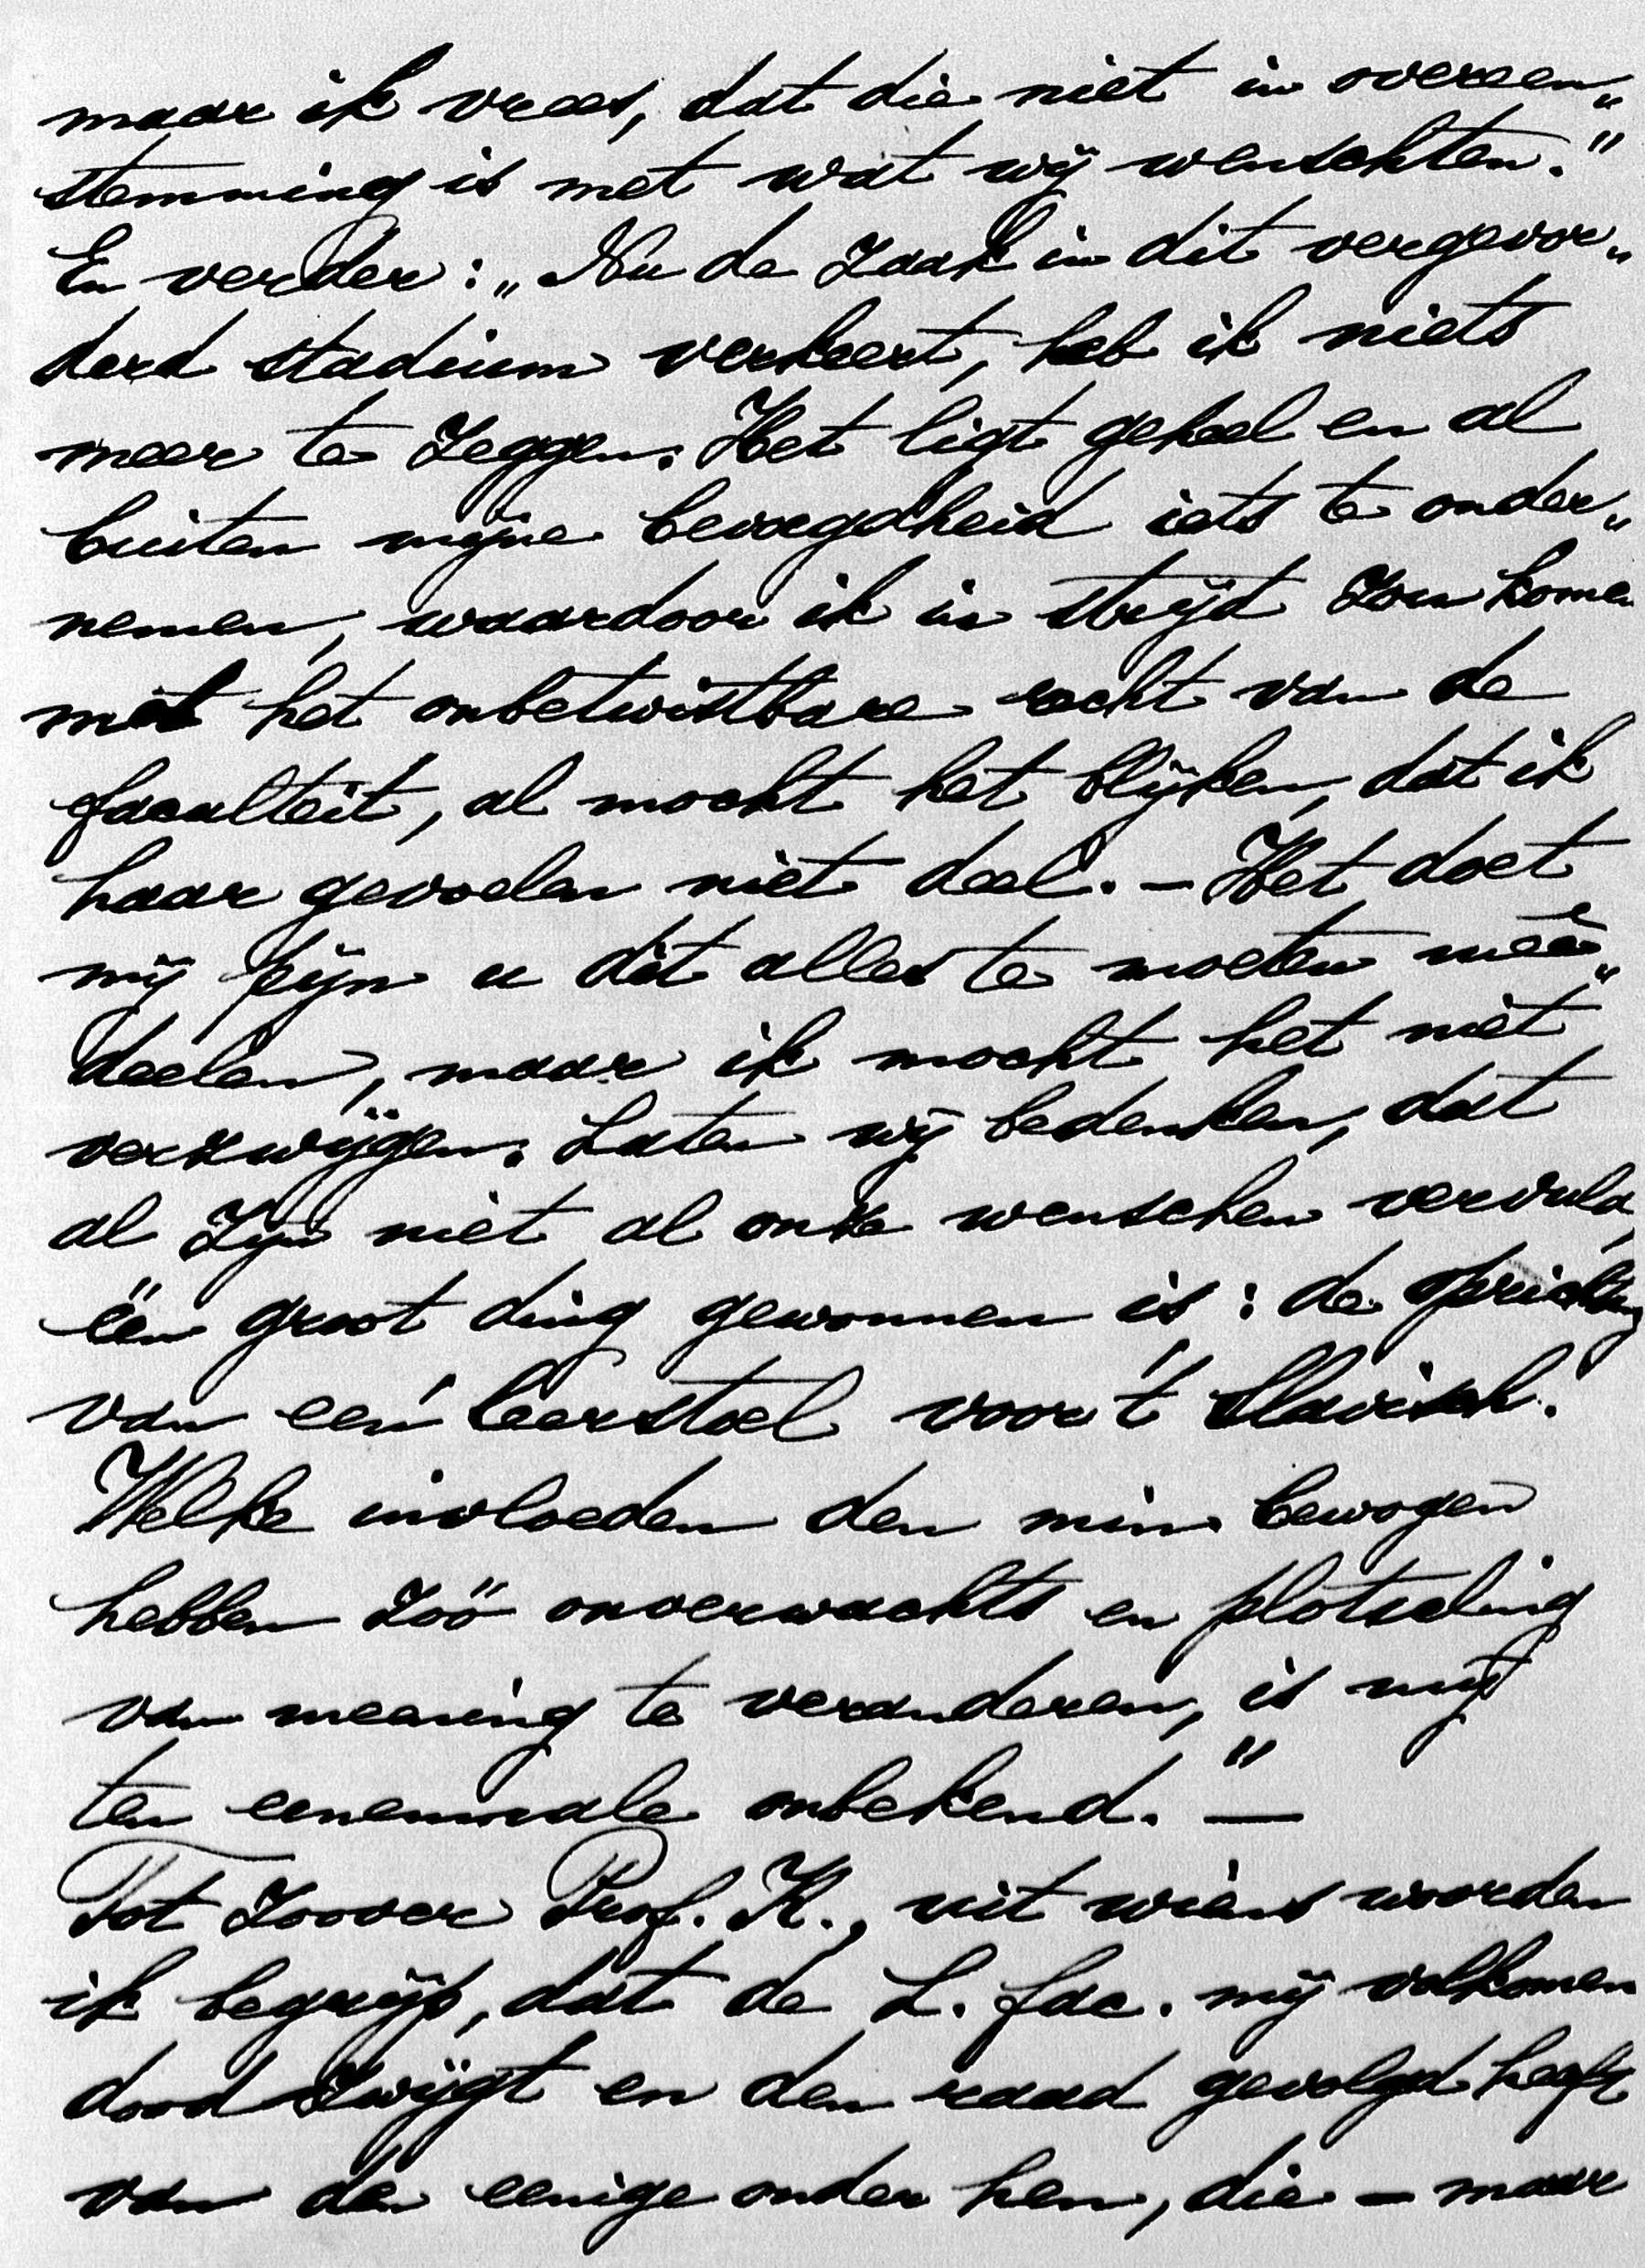 maar ik vrees, dat die niet in overeen„
stemming is met wat wij wenschten."
En verder: „Nu de zaak in dit vergevor„
derd stadium verkeert, heb ik niets
meer te zeggen. Het ligt geheel en al
buiten mijne bevoegdheid iets te onder„
nemen, waardoor ik in strijd zou komen
met het onbetwistbare recht van de
faculteit, al mocht het blijken, dat ik
haar gevoelen niet deel. — Het doet
mij pijn u dit alles te moeten meê„
deelen, maar ik mocht het niet
verzwijgen. Laten wij bedenken, dat
al zijn niet al onze wenschen vervuld,
één groot ding gewonnen is: de oprichting
van een leerstoel voor 't Slavisch.
Welke invloeden den min. bewogen
hebben zóó onverwachts en plotseling
van meening te veranderen, is mij
ten eenenmale onbekend." —
Tot zoover Prof. K., uit wiens woorden
ik begrijp, dat de L. fac. mij volkomen
doodzwijgt en den raad gevolgd heeft
van den eenige onder hen, die — maar